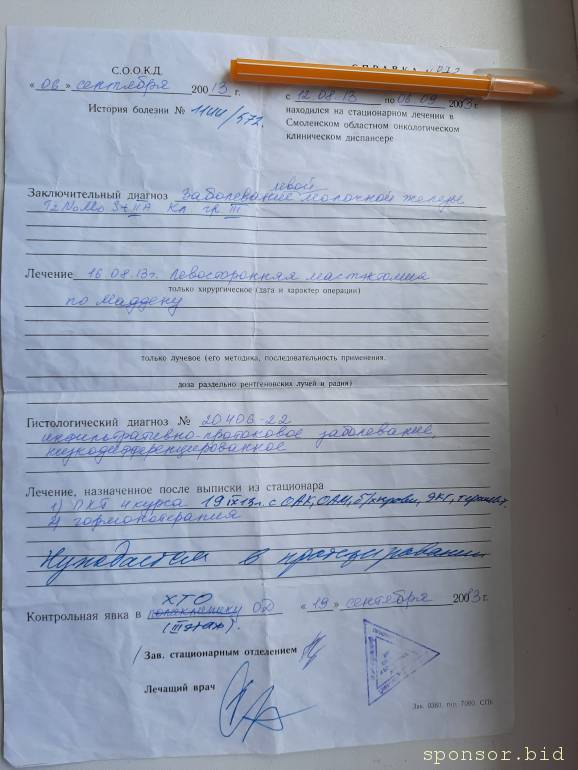 С.О.О.К.Д.
СПРАВКА
« 06 » сентября 2003 13 г.
с 12.08.13 по 06.09 2003 13 г.
История болезни № 1144/572.
находился на стационарном лечении в
Смоленском областном онкологическом
клиническом диспансере
левой
Заключительный диагноз Заболевание молочной железы
T2N0M0 St IIA Кл гр III
Лечение 16.08.13г. Левосторонняя мастэктомия
только хирургическое (дата и характер операции)
по Маддену
только лучевое (его методика, последовательность применения.
доза раздельно рентгеновских лучей и радия)
Гистологический диагноз № 20406-22
инфильтративно-протоковое заболевание,
низкодифференцированное
Лечение, назначенное после выписки из стационара
1) ПХТ 4 курса 19 IX 13г. с ОАК, ОАМ, б/х крови, ЭКГ, терапевт.
2) гормонотерапия
Нуждается в протезировании
ХТО
Контрольная явка в поликлинику ОД « 19 » сентября 2003 13 г.
(III этаж).
Зав. стационарным отделением
Лечащий врач
Зак. 0380. тир. 7000. СПК
sponsor.bid